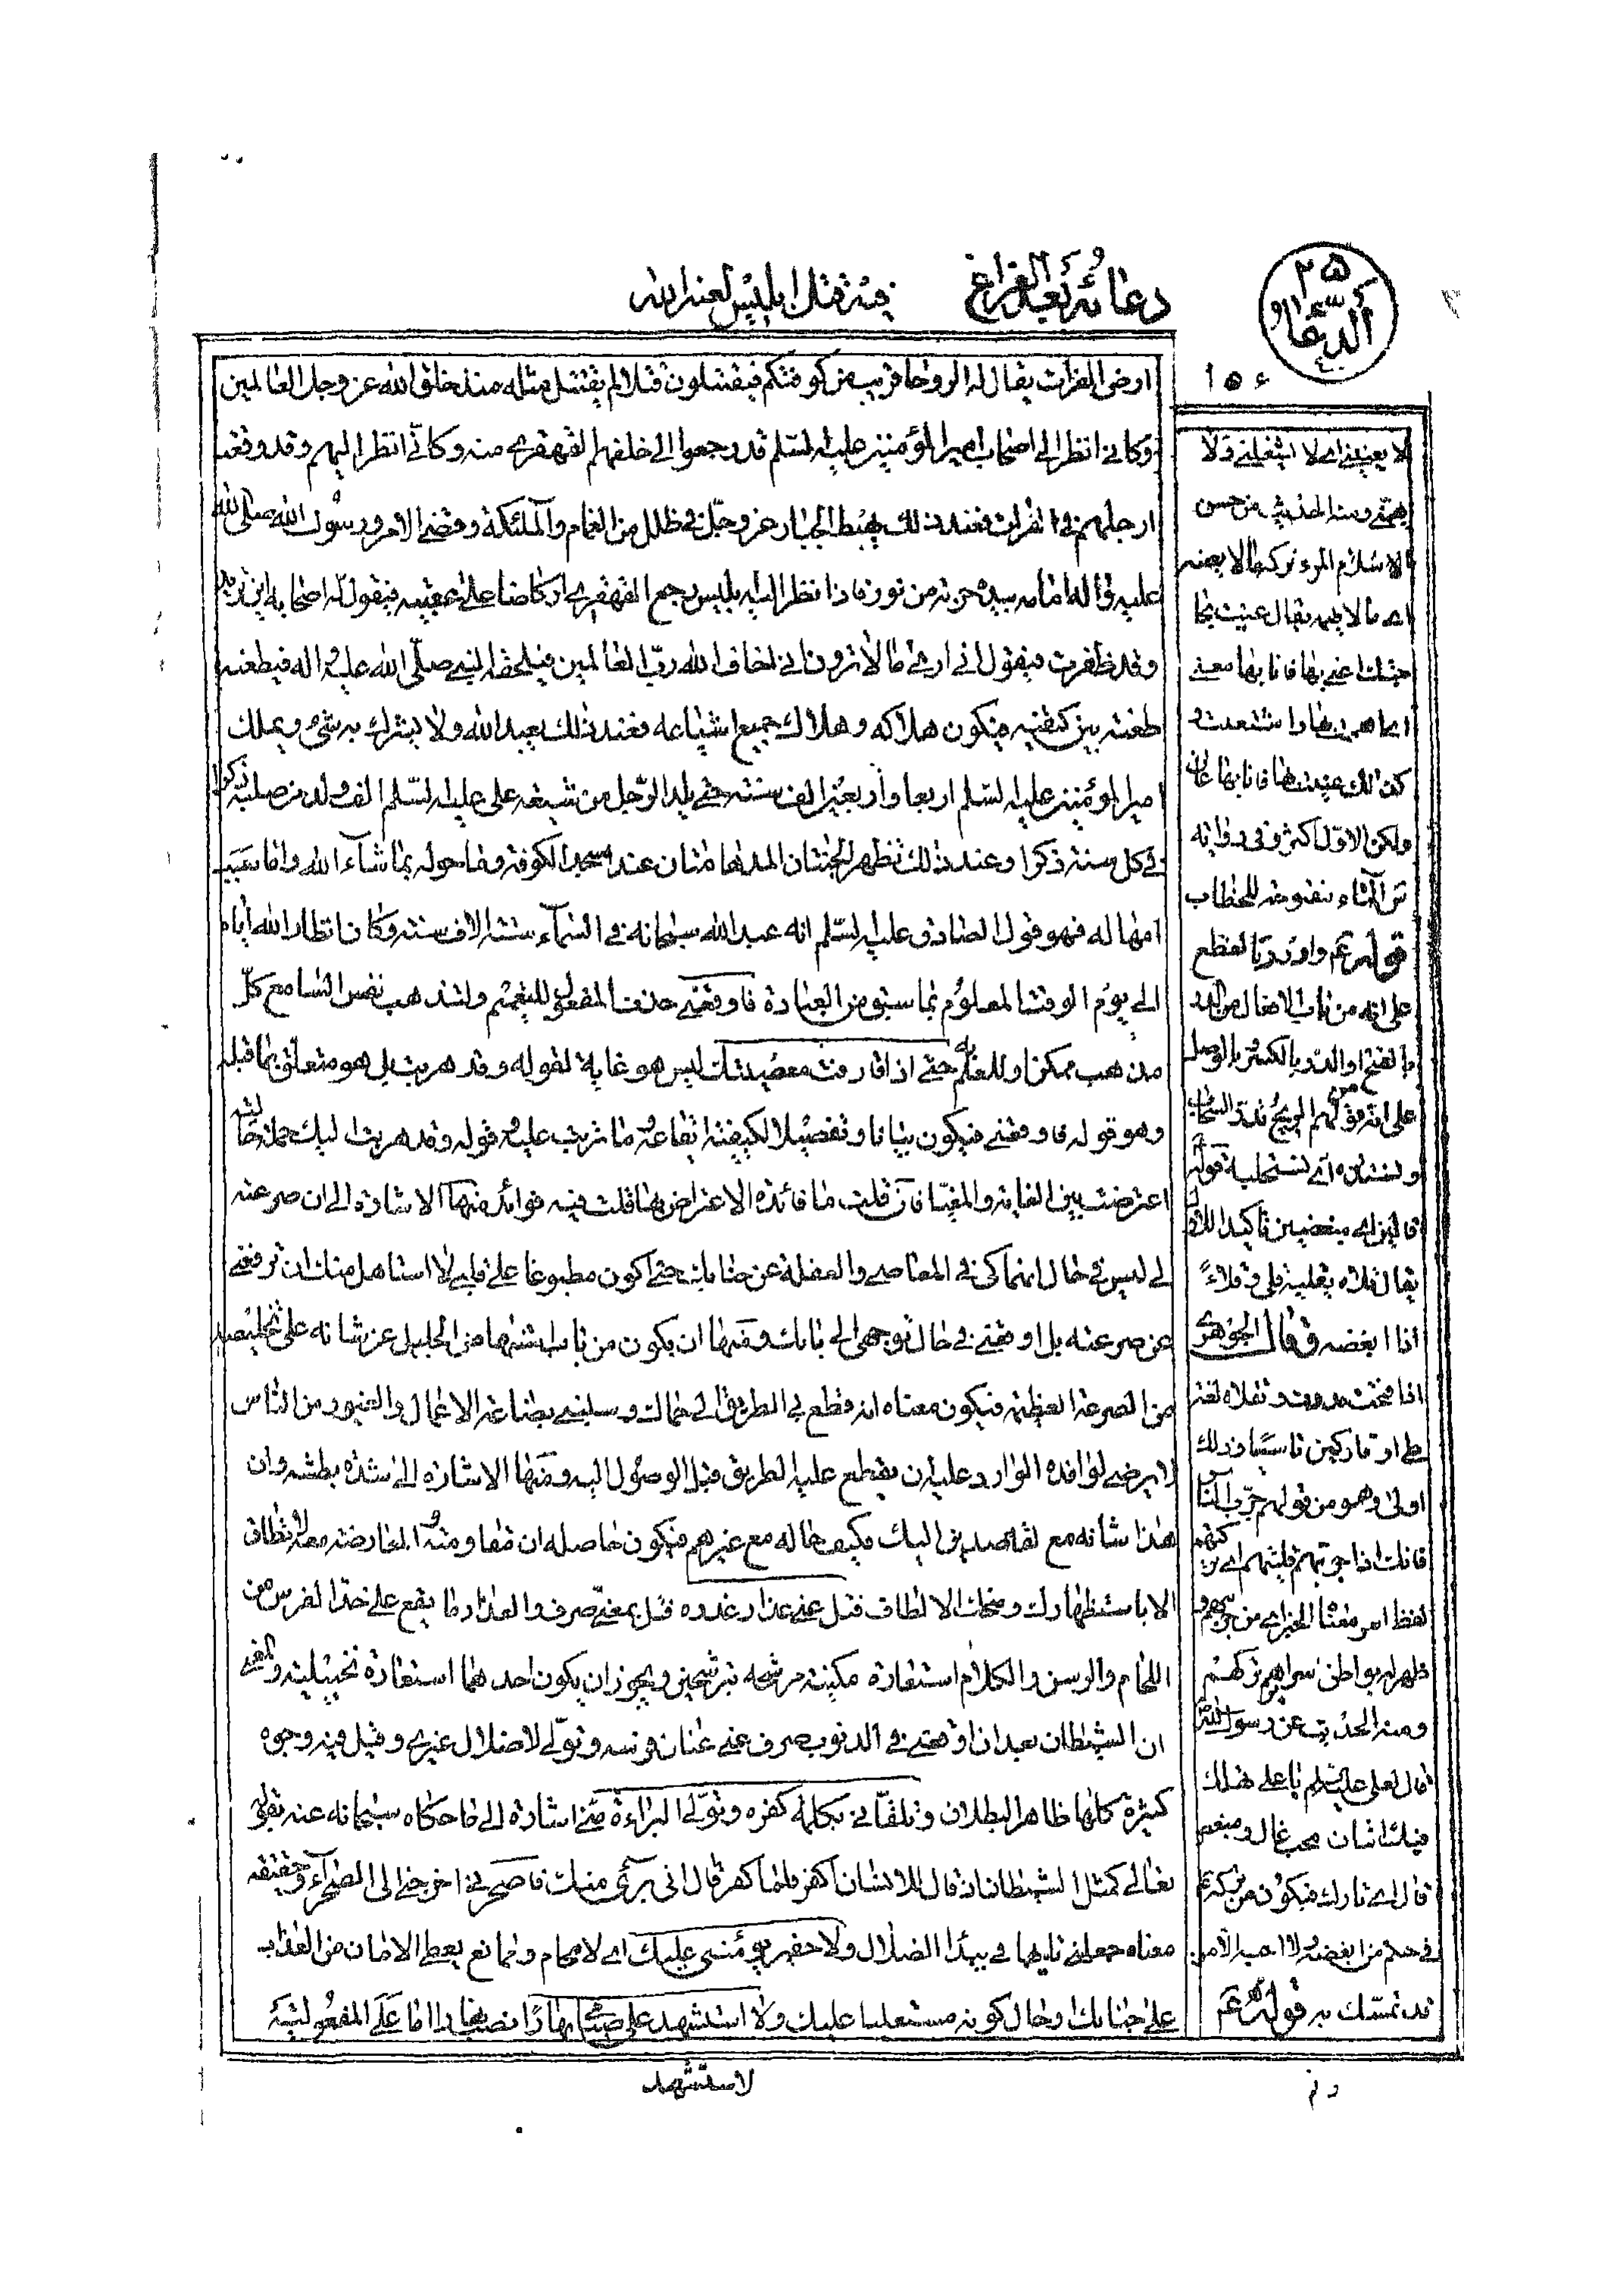 دعائه بعد الفراغ
فيه قتل ابليس لعنه الله
الدعاء
١٥٤
ارض الفرات يقال له الروحا قريب من كوفتكم فيقتتلون قتلا لم يقتتل مثله منذ خلق الله عز وجل العالمين
وكاني انظر الى اصحاب امير المؤمنين عليه السلم قد رجعوا الى خلفهم القهقرى منه وكاني انظر اليهم وقد وقعت
ارجلهم في الفرات فعند ذلك يهبط الجبار عز وجل في ظلل من الغمام والملئكة وقضى الامر ورسول الله صلى الله
عليه واله امامه بيده حربة من نور فاذا نظر اليه ابليس رجع القهقرى راكضا على عقبيه فيقول له اصحابه اين تريد
وقد ظفرت فيقول اني ارى ما لا ترون اني اخاف الله رب العالمين فيلحقه النبي صلى الله عليه واله فيطعنه
طعنة بين كتفيه فيكون هلاكه وهلاك جميع اشياعه فعند ذلك يعبد الله ولا يشرك به شيء ويملك
امير المؤمنين عليه السلم اربعا واربعين الف سنة حتى يلد الرجل من شيعة علي عليه السلم الف ولد من صلبه ذكرا
في كل سنة ذكرا وعند ذلك تظهر الجنتان المدهامتان عند مسجد الكوفة وما حوله بما شاء الله واما سبب
امهاله فهو قول الصادق عليه السلم انه عبد الله سبحانه في السماء ستة الاف سنة وكان انظار الله اياه
الى يوم الوقت المعلوم بما سبق من العبادة فاوقعني حذف المفعول للتعميم ولتذهب نفس السامع كل
مذهب ممكن او للعلم به حتى اذا قارفت معصيتك ليس هو غاية لقوله وقد هربت بل هو متعلق بما قبله
وهو قوله فاوقعني فيكون بيانا وتفصيلا لكيفية ايقاعه ما ترتب عليه قوله وقد هربت اليك جملة حالية
اعترضت بين الغاية والمغيا فان قلت ما فائدة الاعتراض بها قلت فيه فوائد منها الاشارة الى ان صرعته
لي ليس في حال انهماكي في المعاصي والغفلة عن جنابك حتى اكون مطبوعا على قلبي لا استاهل منك ان ترفعني
عن صرعته بل اوقعني في حال توجهي الى بابك ومنها ان يكون من باب استنهاض الجليل عز شانه على تخليصه
من الصرعة العظيمة فيكون معناه انه قطع لي الطريق الى حماك وسلبني بضاعة الاعمال والغيور من الناس
لا يرضى لوافده الوارد عليه ان يقطع عليه الطريق قبل الوصول اليه ومنها الاشارة الى شدة بطشه وان
هذا شانه مع القاصدين اليك فكيف حاله مع غيرهم فيكون حاصله ان مقاومته المعارضة معه لا تطاق
الا باستظهارك ومنحك الالطاف فتل عني عذار غدره فتل بمعنى صرف والعذار ما يقع على خد الفرس من
اللجام والرسن والكلام استعارة مكنية مرشحة بترشيحين ويجوز ان يكون احدهما استعارة تخييلية والمعنى
ان الشيطان بعد ان اوقعني في الذنوب صرف عني عنان فرسه وتولى لاضلال غيري وقيل فيه وجوه
كثيرة كلها ظاهر البطلان وتلقاني بكلمة كفره وتولى البراءة مني اشارة الى ما حكاه سبحانه عنه بقوله
تعالى كمثل الشيطان اذ قال للانسان اكفر فلما كفر قال اني بريء منك فاصحرني اخرجني الى الصحراء وحقيقة
معناه جعلني تايها في بيداء الضلال ولا خفير يؤمنني عليك اي لا محام ومانع يعطي الامان من العذاب
على جنابك وحال كونه مستعليا عليك ولا استشهد على صيامي نهارا نصب نهارا اما على المفعولية
لا استشهد
لا يعنيني اي لا يشغلني ولا
يهمني ومنه الحديث من حسن
الاسلام المرء تركه ما لا يعنيه
اي ما لا يهمه يقال عنيت بحا
جتك اعنى بها فانا بها معني
اي اهتممت بها واشتغلت و
كذلك عنيت بها فانا بها عان
ولكن الاول اكثر وفي رواية
س التاء مفتوحة للخطاب
قوله وادرر بالقطع
على انه من باب الافعال من الدر
بالفتح او الدر بالكسر وبالوصل
على انه من قولهم الريح تدر السحاب
وتستدره اي تستحلبه قوله
قالين اي مبغضين تاكيدا للاول
يقال قلاه يقليه قلى وقلاء
اذا ابغضه وقال الجوهري
اذا فتحت مددت وتقلاه لغة
طي او تاركين تاسيا وذلك
اولى وهو من قولهم جرب الناس
فانك اذا جربتهم قليتهم اي تركتهم
لفظ امر معناه الخبر اي من جربهم و
ظهر له بواطن سرائرهم تركهم
ومنه الحديث عن رسول الله
قال لعلي عليه السلم يا علي هلك
فيك اثنان محب غال ومبغض
قال اي تارك فيكون من تركه
في حكم من ابغضه لا احب الامر
قد تمسك به قوله